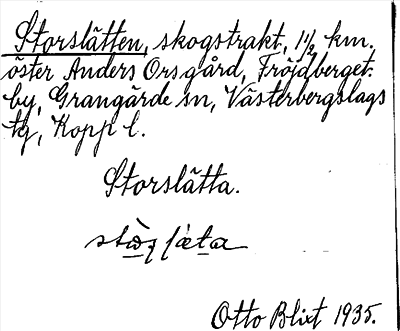 Storslätten, skogstrakt, 1½ km.
öster Anders Orsgård, Fröjdberget.
by, Grangärde sn, Västerbergslags
tg, Kopp l.
Storslätta.
Otto Blixt 1935.